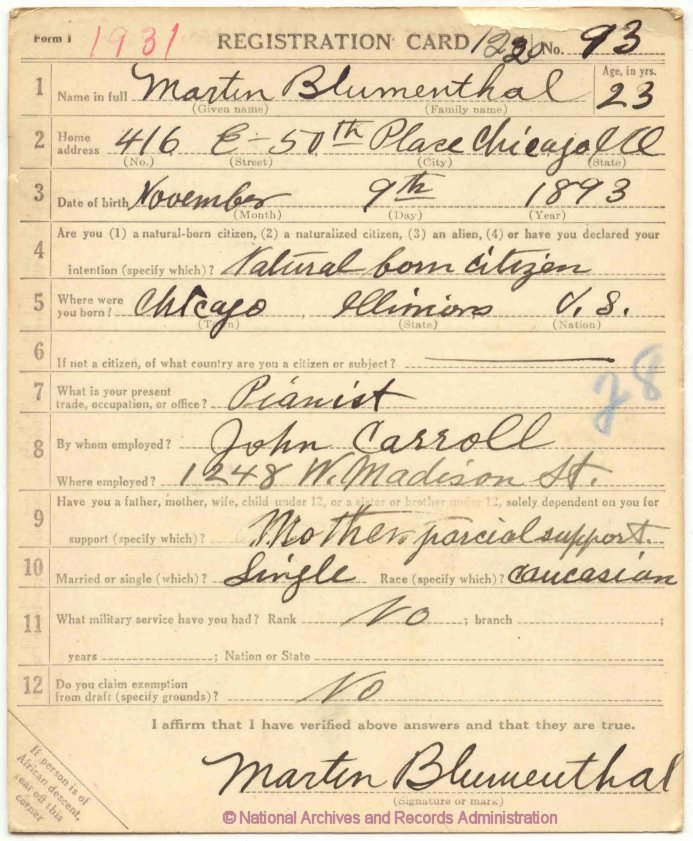 Form 1 1931 REGISTRATION CARD No. 93
1 Name in full Martin Blumenthal Age, in yrs. 23
(Given name) (Family name)
2 Home address 416 E-50th Place Chicago Ill
(No.) (Street) (City) (State)
3 Date of birth November 9th 1893
(Month) (Day) (Year)
4 Are you (1) a natural-born citizen, (2) a naturalized citizen, (3) an alien, (4) or have you declared your
intention (specify which)? Natural born citizen
5 Where were you born? Chicago, Illinions U.S.
(Town) (State) (Nation)
6 If not a citizen, of what country are you a citizen or subject?
7 What is your present trade, occupation, or office? Pianist
28
8 By whom employed? John Carroll
Where employed? 1248 W. Madison St.
9 Have you a father, mother, wife, child under 12, or a sister or brother under 12, solely dependent on you for
support (specify which)? Mother parcial support.
10 Married or single (which)? Single Race (specify which)? Caucasian
11 What military service have you had? Rank No ; branch ;
years ; Nation or State
12 Do you claim exemption from draft (specify grounds)? No
I affirm that I have verified above answers and that they are true.
Martin Blumenthal
(Signature or mark)
If person is of
African descent,
tear off this
corner
© National Archives and Records Administration